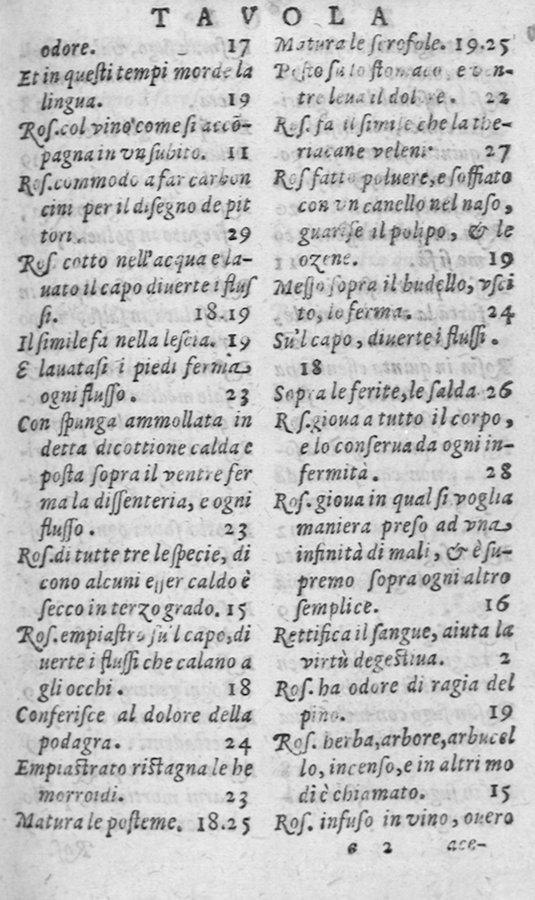 TAVOLA
odore. 17
Et in questi tempi morde la
lingua. 19
Ros.col vino come si accō-
pagna in vn subito. 11
Ros.commodo a far carbon
cini per il disegno de pit
tori. 29
Ros. cotto nell'acqua e la-
uato il capo diuerte i flus
si. 18.19
Il simile fa nella lescia. 19
E lauatasi i piedi ferma
ogni flusso. 23
Con spunga ammollata in
detta dicottione calda e
posta sopra il ventre fer
ma la dissenteria, e ogni
flusso. 23
Ros.di tutte tre le specie, di
cono alcuni esser caldo è
secco in terzo grado. 15
Ros.empiastro su'l capo,di
uerte i flussi che calano a
gli occhi. 18
Conferisce al dolore della
podagra. 24
Empiastrato ristagna le he
morroidi. 23
Matura le posteme. 18.25
Matura le scrofole. 19.25
Posto su lo stomaco e ven-
tre leua il dolore. 22
Ros. fa il simile che la the-
riaca ne veleni. 27
Ros fatto poluere,e soffiato
con vn canello nel naso,
guarise il polipo, & le
ozene. 19
Messo sopra il budello, vsci
to, lo ferma. 24
Su'l capo, diuerte i flussi.
18
Sopra le ferite,le salda 26
Ros.gioua a tutto il corpo,
e lo conserua da ogni in-
fermità. 28
Ros. gioua in qual si voglia
maniera preso ad vna
infinità di mali, & è su-
premo sopra ogni altro
semplice. 16
Rettifica il sangue, aiuta la
virtù degestiua. 2
Ros. ha odore di ragia del
pino. 19
Ros. herba,arbore,arbucel
lo, incenso,e in altri mo
di è chiamato. 15
Ros. infuso in vino, ouero
e 2 ace-